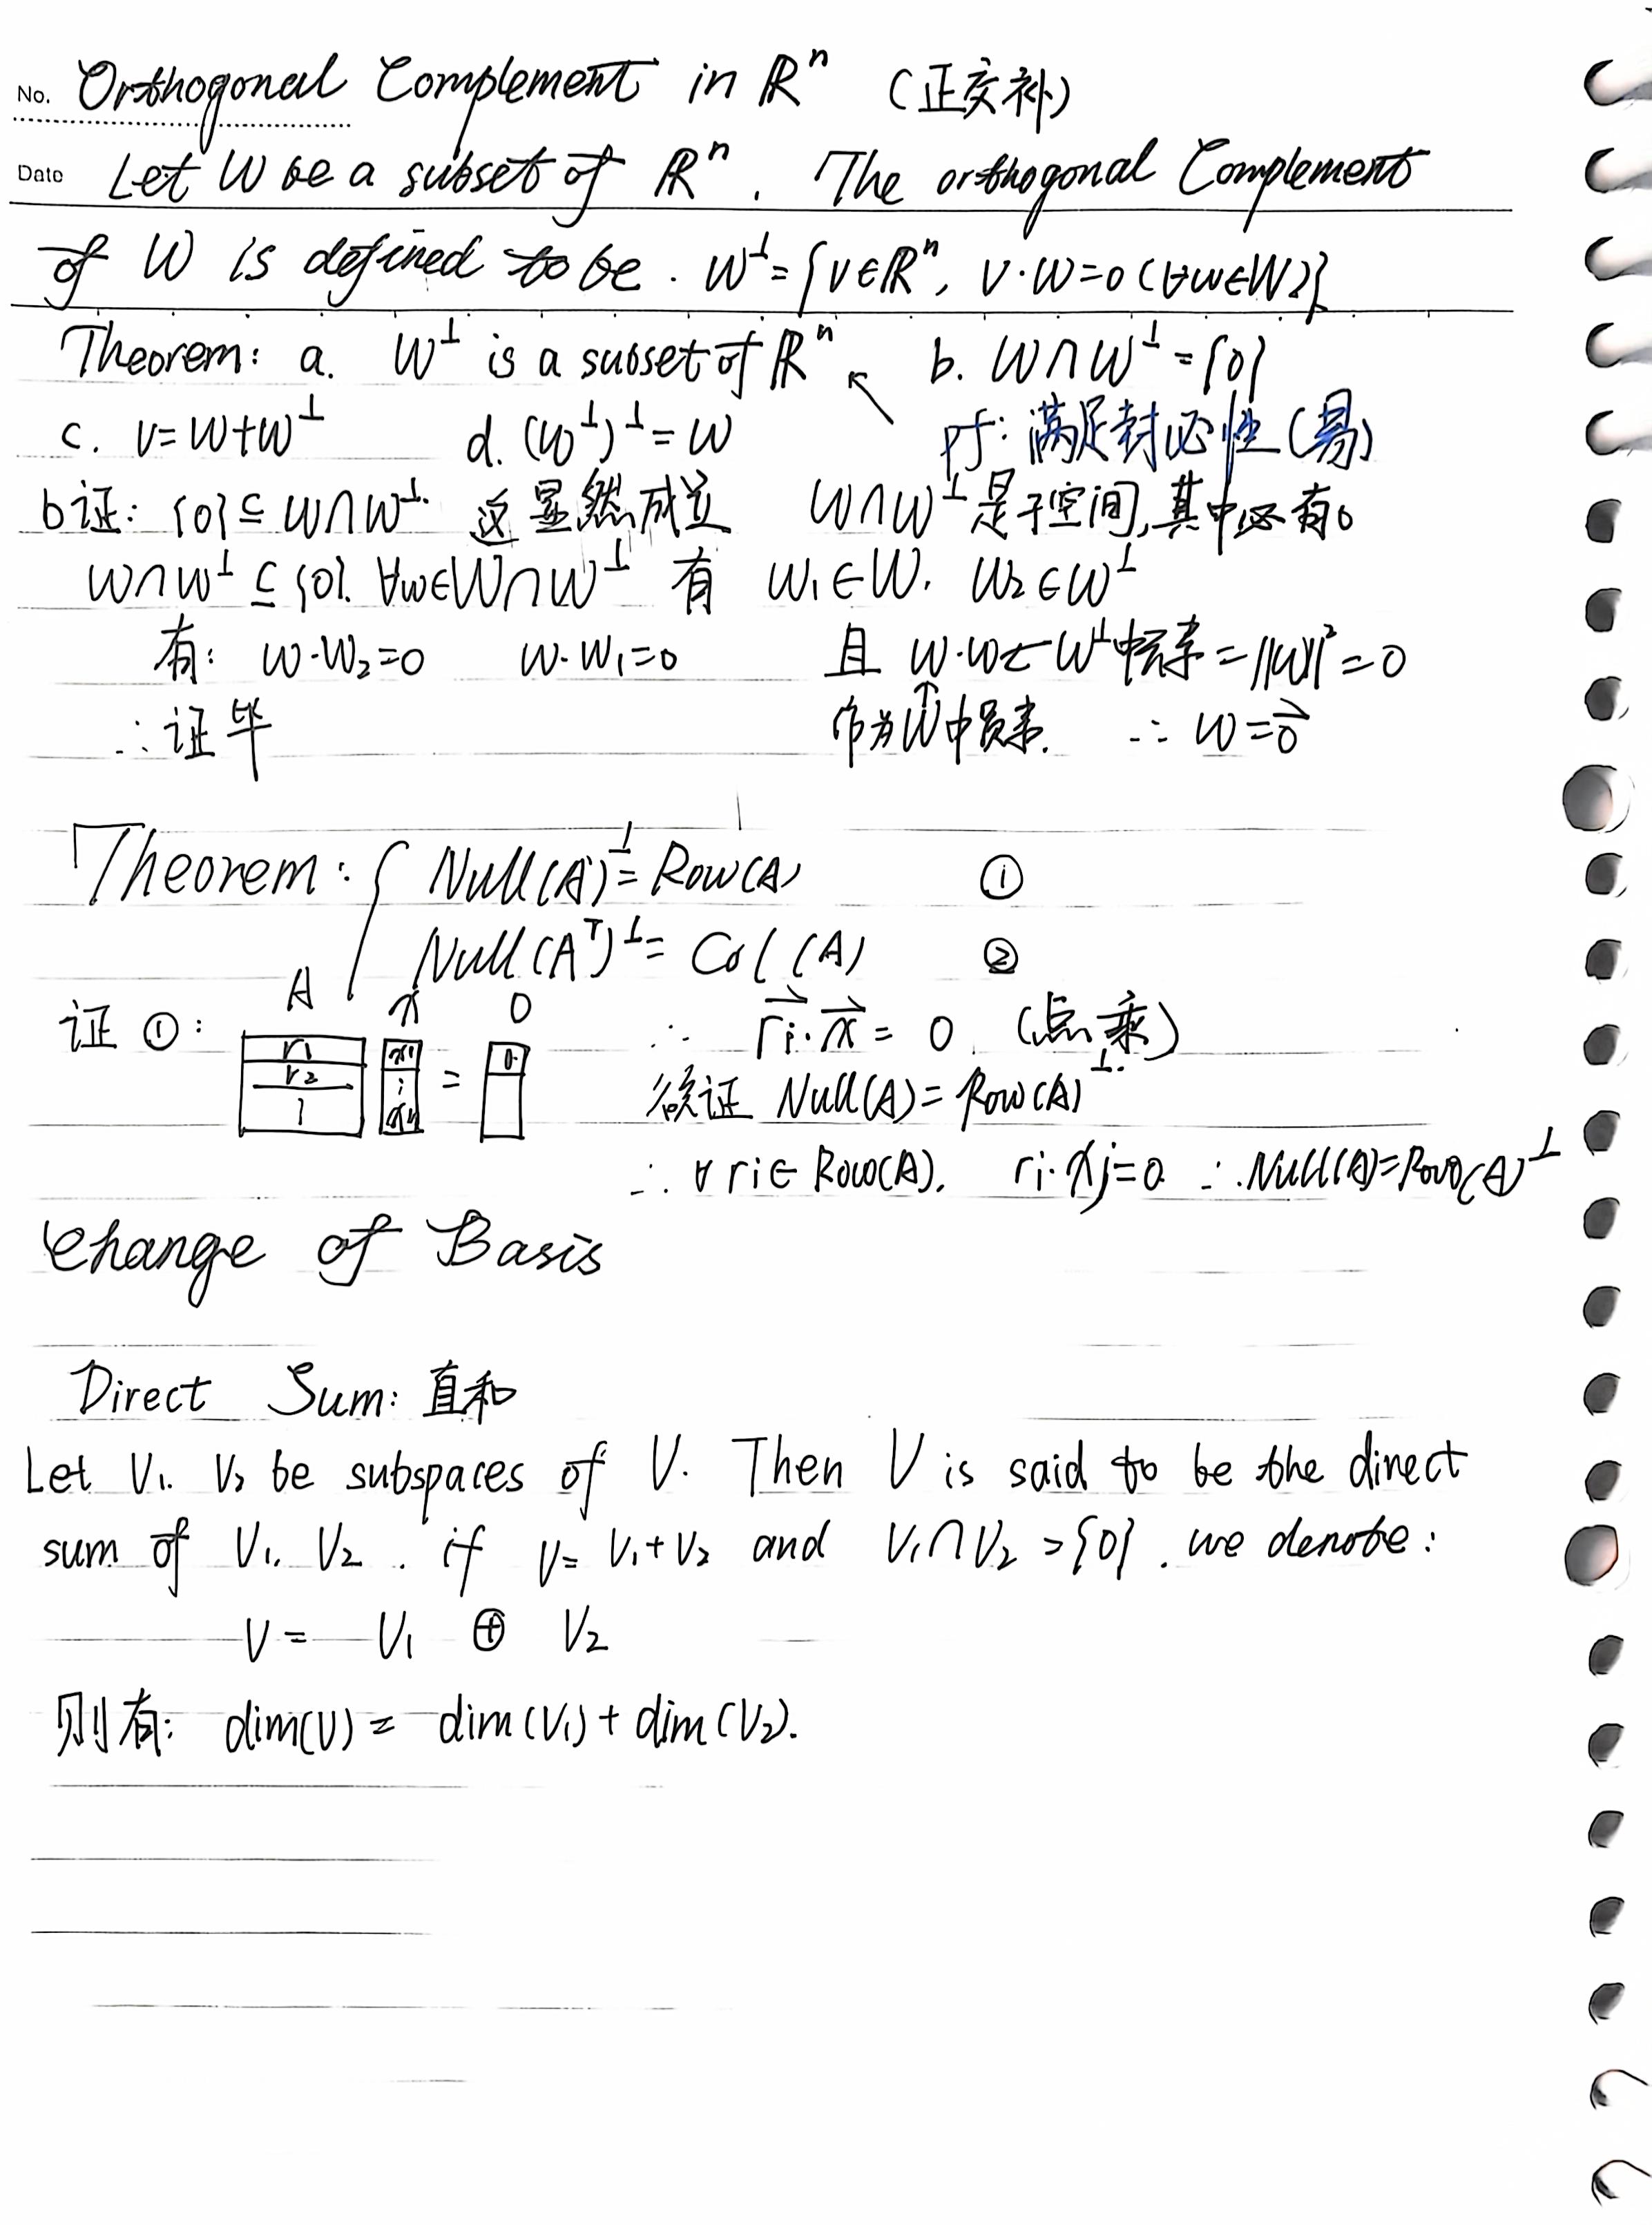 No. Orthogonal Complement in ℝⁿ (正交补)
Date Let W be a subset of ℝⁿ. The orthogonal Complement
of W is defined to be. W⊥={v∈ℝⁿ, v·w=0 (∀w∈W)}
Theorem: a. W⊥ is a subset of ℝⁿ ↖ b. W∩W⊥={0}
c. V=W+W⊥ d. (W⊥)⊥=W pf: 满足封闭性(易)
b证: {0}⊆W∩W⊥. 这显然成立 W∩W⊥是子空间,其中必有0
W∩W⊥⊆{0}. ∀w∈W∩W⊥ 有 w₁∈W. w₂∈W⊥
有: w·w₂=0 w·w₁=0 且 w·w←W⊥中元素=||w||²=0
∴证毕 作为W中员素. ∴ w=0⃗
Theorem: { Null(A)⊥=Row(A) ①
Null(AT)⊥=Col(A) ②
A x 0
证①: r₁ r₂ x₁ ⋮ xn = 0 ∴ r⃗i·x⃗=0. (点乘)
欲证 Null(A)=Row(A)⊥.
∴ ∀ ri∈Row(A). ri·xj=0 ∴Null(A)=Row(A)⊥
Change of Basis
Direct Sum: 直和
Let V₁. V₂ be subspaces of V. Then V is said to be the direct
sum of V₁. V₂. if V=V₁+V₂ and V₁∩V₂={0}. we denote:
V = V₁ ⊕ V₂
则有: dim(V)=dim(V₁)+dim(V₂).